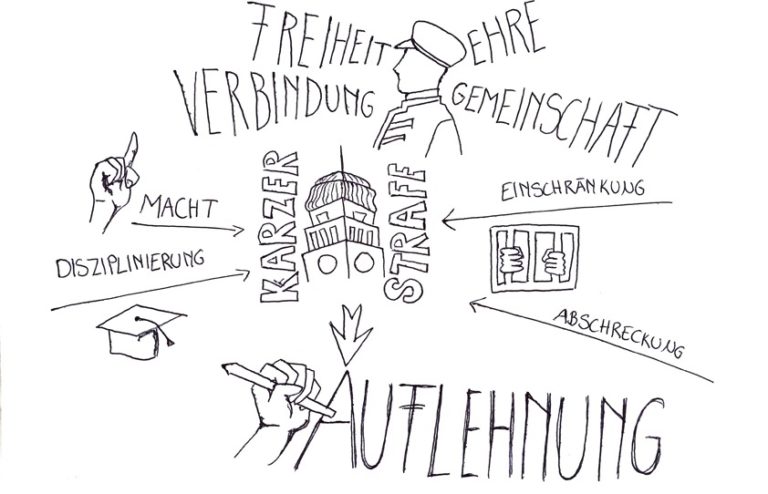 FREIHEIT EHRE
VERBINDUNG GEMEINSCHAFT
KARZER
STRAFE
MACHT
EINSCHRÄNKUNG
DISZIPLINIERUNG
ABSCHRECKUNG
AUFLEHNUNG